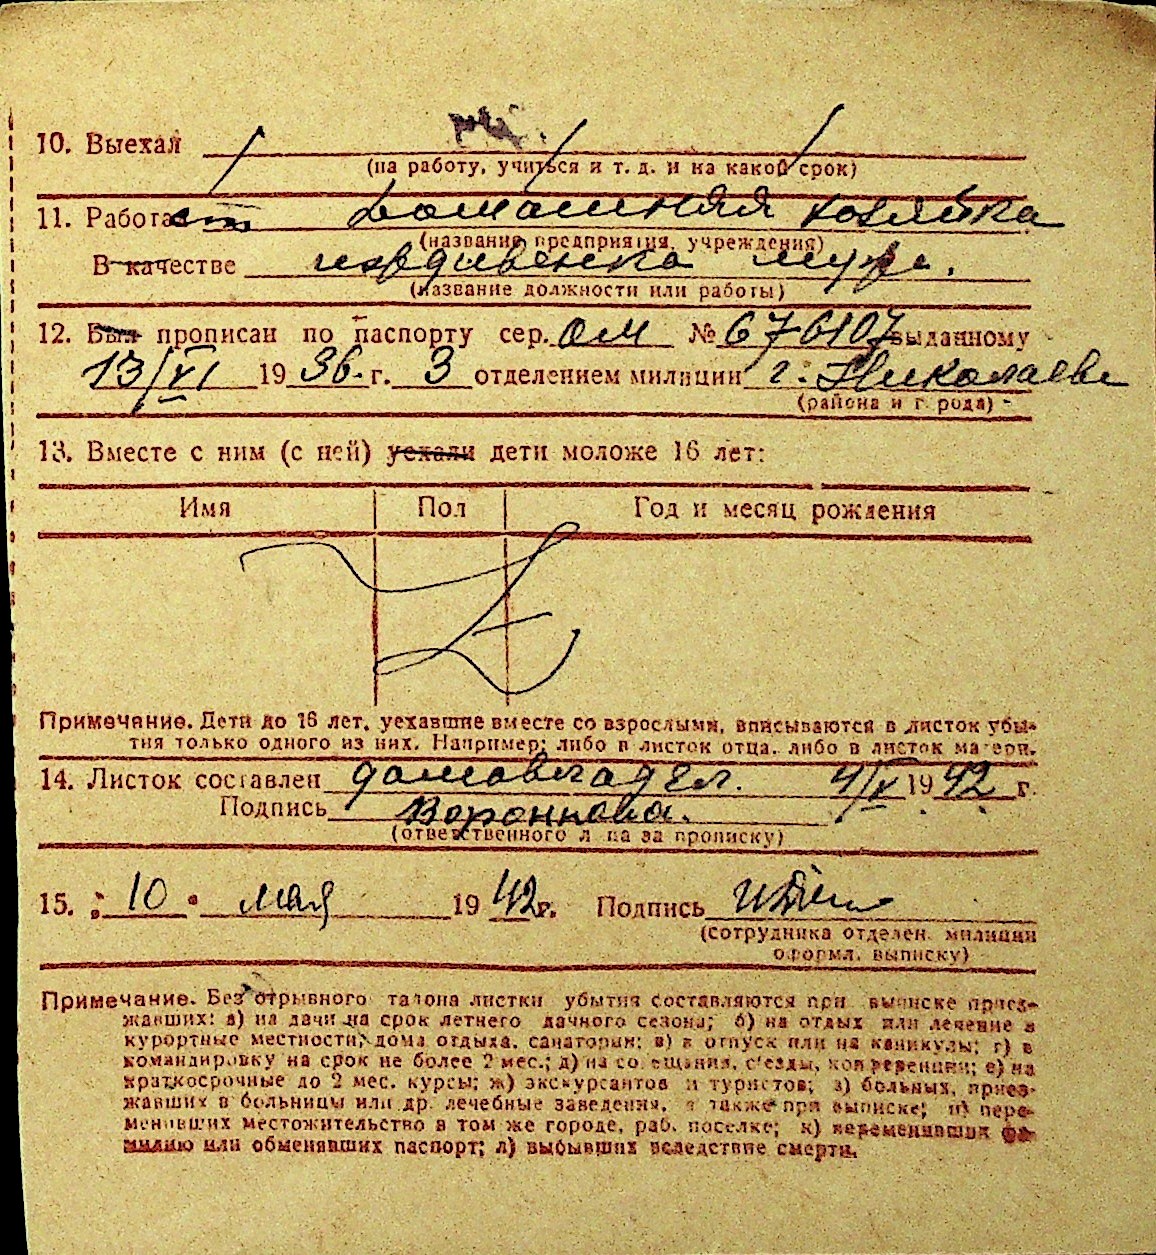 10. Выехал
(на работу, учиться и т. д. и на какой срок)
11. Работает домашняя хозяйка
(название предприятия, учреждения)
В качестве иждивенка мужа.
(название должности или работы)
12. Был прописан по паспорту сер. ОМ № 676107 выданному
13/VI 1936. г. 3 отделением милиции г. Николаева
(района и города)
13. Вместе с ним (с ней) уехали дети моложе 16 лет:
Имя Пол Год и месяц рождения
Примечание. Дети до 16 лет, уехавшие вместе со взрослыми, вписываются в листок убы-
тия только одного из них. Например: либо в листок отца, либо в листок матери.
14. Листок составлен домовладел. 4/V 1942 г.
Подпись Воронкова.
(ответственного лица за прописку)
15. "10" мая 1942 г. Подпись
(сотрудника отделен. милиции
оформл. выписку)
Примечание. Без отрывного талона листки убытия составляются при выписке приез-
жавших: а) на дачи на срок летнего дачного сезона; б) на отдых или лечение в
курортные местности, дома отдыха, санатории; в) в отпуск или на каникулы; г) в
командировку на срок не более 2 мес.; д) на совещания, съезды, конференции; е) на
краткосрочные до 2 мес. курсы; ж) экскурсантов и туристов; з) больных, приез-
жавших в больницы или др. лечебные заведения, а также при выписке; и) пере-
менивших местожительство в том же городе, раб. поселке; к) переменивших фа-
милию или обменявших паспорт; л) выбывших вследствие смерти.